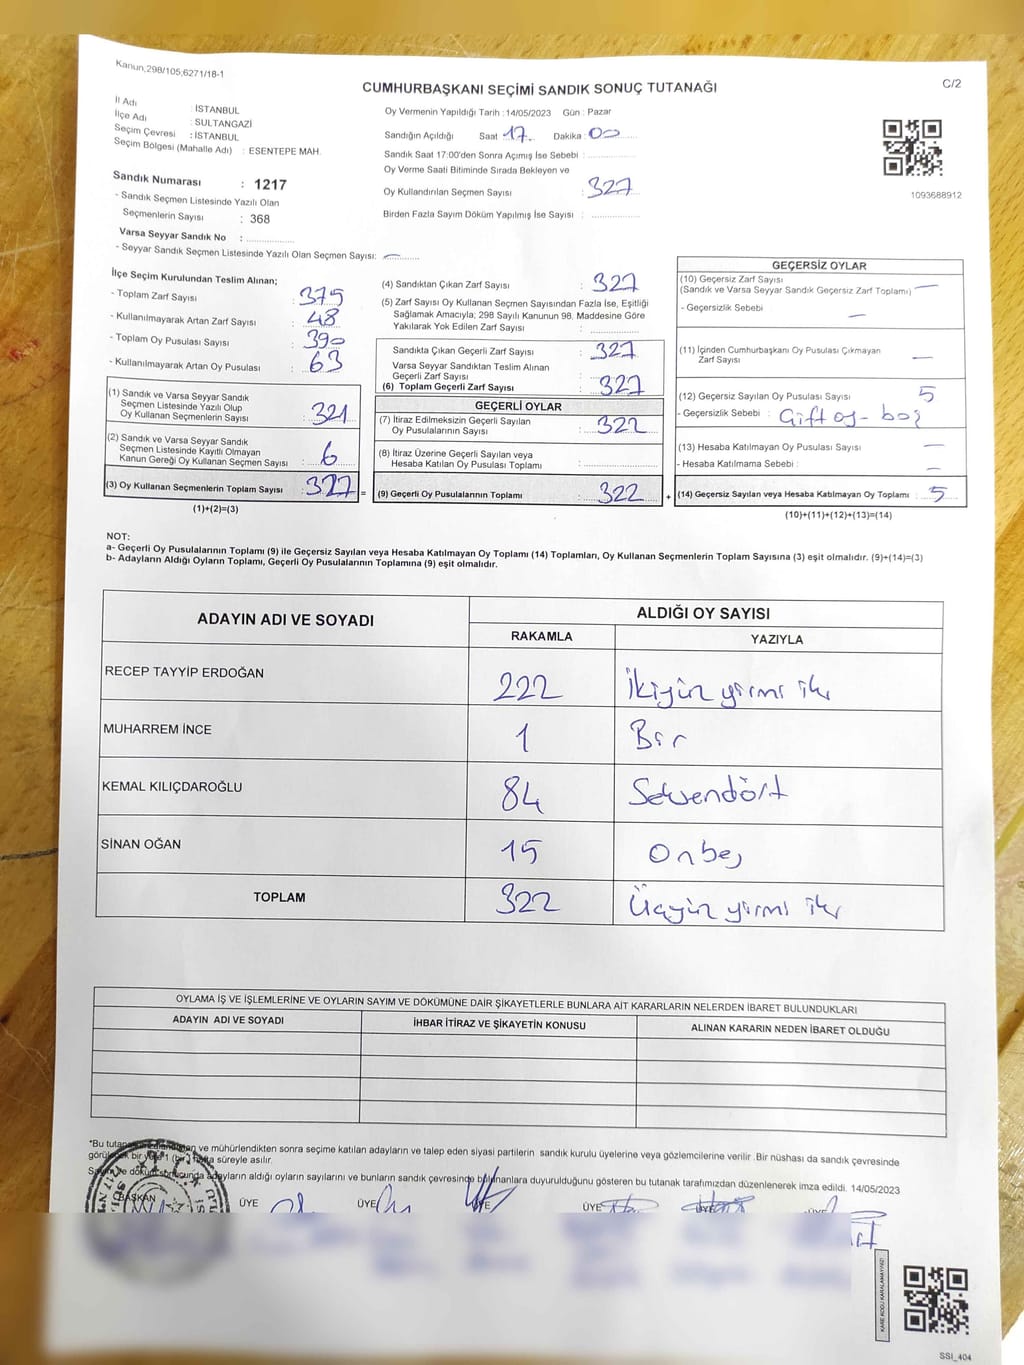 Kanun;298/105;6271/18-1
C/2
CUMHURBAŞKANI SEÇİMİ SANDIK SONUÇ TUTANAĞI
İl Adı : İSTANBUL
İlçe Adı : SULTANGAZİ
Seçim Çevresi : İSTANBUL
Seçim Bölgesi (Mahalle Adı) : ESENTEPE MAH.
Sandık Numarası : 1217
- Sandık Seçmen Listesinde Yazılı Olan
Seçmenlerin Sayısı : 368
Varsa Seyyar Sandık No :
- Seyyar Sandık Seçmen Listesinde Yazılı Olan Seçmen Sayısı: —
Oy Vermenin Yapıldığı Tarih :14/05/2023 Gün : Pazar
Sandığın Açıldığı Saat 17 Dakika : 00
Sandık Saat 17:00'den Sonra Açımış İse Sebebi :
Oy Verme Saati Bitiminde Sırada Bekleyen ve
Oy Kullandırılan Seçmen Sayısı : 327
Birden Fazla Sayım Döküm Yapılmış İse Sayısı :
1093688912
İlçe Seçim Kurulundan Teslim Alınan;
- Toplam Zarf Sayısı : 375
- Kullanılmayarak Artan Zarf Sayısı : 48
- Toplam Oy Pusulası Sayısı : 390
- Kullanılmayarak Artan Oy Pusulası : 63
(1) Sandık ve Varsa Seyyar Sandık
Seçmen Listesinde Yazılı Olup
Oy Kullanan Seçmenlerin Sayısı : 321
(2) Sandık ve Varsa Seyyar Sandık
Seçmen Listesinde Kayıtlı Olmayan
Kanun Gereği Oy Kullanan Seçmen Sayısı : 6
(3) Oy Kullanan Seçmenlerin Toplam Sayısı : 327
(1)+(2)=(3)
(4) Sandıktan Çıkan Zarf Sayısı : 327
(5) Zarf Sayısı Oy Kullanan Seçmen Sayısından Fazla İse, Eşitliği
Sağlamak Amacıyla; 298 Sayılı Kanunun 98. Maddesine Göre
Yakılarak Yok Edilen Zarf Sayısı :
Sandıkta Çıkan Geçerli Zarf Sayısı : 327
Varsa Seyyar Sandıktan Teslim Alınan
Geçerli Zarf Sayısı :
(6) Toplam Geçerli Zarf Sayısı : 327
GEÇERLİ OYLAR
(7) İtiraz Edilmeksizin Geçerli Sayılan
Oy Pusulalarının Sayısı : 322
(8) İtiraz Üzerine Geçerli Sayılan veya
Hesaba Katılan Oy Pusulası Toplamı :
= (9) Geçerli Oy Pusulalarının Toplamı : 322 +
GEÇERSİZ OYLAR
(10) Geçersiz Zarf Sayısı
(Sandık ve Varsa Seyyar Sandık Geçersiz Zarf Toplamı) —
- Geçersizlik Sebebi —
(11) İçinden Cumhurbaşkanı Oy Pusulası Çıkmayan
Zarf Sayısı —
(12) Geçersiz Sayılan Oy Pusulası Sayısı 5
- Geçersizlik Sebebi : Çift oy - boş
(13) Hesaba Katılmayan Oy Pusulası Sayısı —
- Hesaba Katılmama Sebebi : —
(14) Geçersiz Sayılan veya Hesaba Katılmayan Oy Toplamı : 5
(10)+(11)+(12)+(13)=(14)
NOT:
a- Geçerli Oy Pusulalarının Toplamı (9) ile Geçersiz Sayılan veya Hesaba Katılmayan Oy Toplamı (14) Toplamları, Oy Kullanan Seçmenlerin Toplam Sayısına (3) eşit olmalıdır. (9)+(14)=(3)
b- Adayların Aldığı Oyların Toplamı, Geçerli Oy Pusulalarının Toplamına (9) eşit olmalıdır.
ADAYIN ADI VE SOYADI ALDIĞI OY SAYISI
RAKAMLA YAZIYLA
RECEP TAYYİP ERDOĞAN 222 İkiyüz yirmi iki
MUHARREM İNCE 1 Bir
KEMAL KILIÇDAROĞLU 84 Seksendört
SİNAN OĞAN 15 Onbeş
TOPLAM 322 Üçyüz yirmi iki
OYLAMA İŞ VE İŞLEMLERİNE VE OYLARIN SAYIM VE DÖKÜMÜNE DAİR ŞİKAYETLERLE BUNLARA AİT KARARLARIN NELERDEN İBARET BULUNDUKLARI
ADAYIN ADI VE SOYADI İHBAR İTİRAZ VE ŞİKAYETİN KONUSU ALINAN KARARIN NEDEN İBARET OLDUĞU
*Bu ve mühürlendikten sonra seçime katılan adayların ve talep eden siyasi partilerin sandık kurulu üyelerine veya gözlemcilerine verilir .Bir nüshası da sandık çevresinde
bir 1 süreyle asılır.
adayların aldığı oyların sayılarını ve bunların sandık çevresinde bulunanlara duyurulduğunu gösteren bu tutanak tarafımızdan düzenlenerek imza edildi. 14/05/2023
BAŞKAN ÜYE ÜYE ÜYE ÜYE ÜYE
KARE KODU KARALAMAYINIZ!
SSİ_404